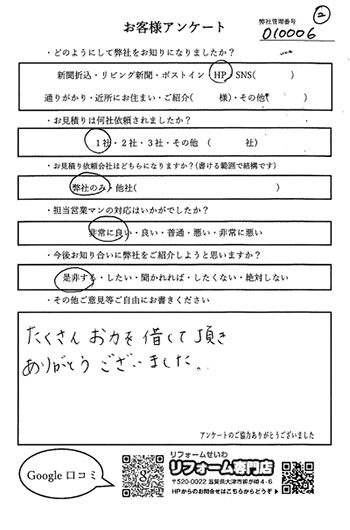 ②
お客様アンケート
弊社管理番号
010006
・どのようにして弊社をお知りになりましたか？
新聞折込・リビング新聞・ポストイン・HP・SNS(　　　)
通りがかり・近所にお住まい・ご紹介(　　　様)・その他(　　　)
・お見積りは何社依頼されましたか？
1社・2社・3社・その他　(　　　社)
・お見積り依頼会社はどちらになりますか？(書ける範囲で結構です)
弊社のみ・他社(　　　)
・担当営業マンの対応はいかがでしたか？
非常に良い・良い・普通・悪い・非常に悪い
・今後お知り合いに弊社をご紹介しようと思いますか？
是非する・したい・聞かれれば・したくない・絶対しない
・その他ご意見等ご自由にお書きください
たくさん お力を 借して 頂き
ありがとう ございました。
アンケートのご協力ありがとうございました
Google 口コミ
リフォームせいわ
リフォーム専門店
〒520-0022 滋賀県大津市柳が崎4-6
HPからのお問合せはこちらからどうぞ▶